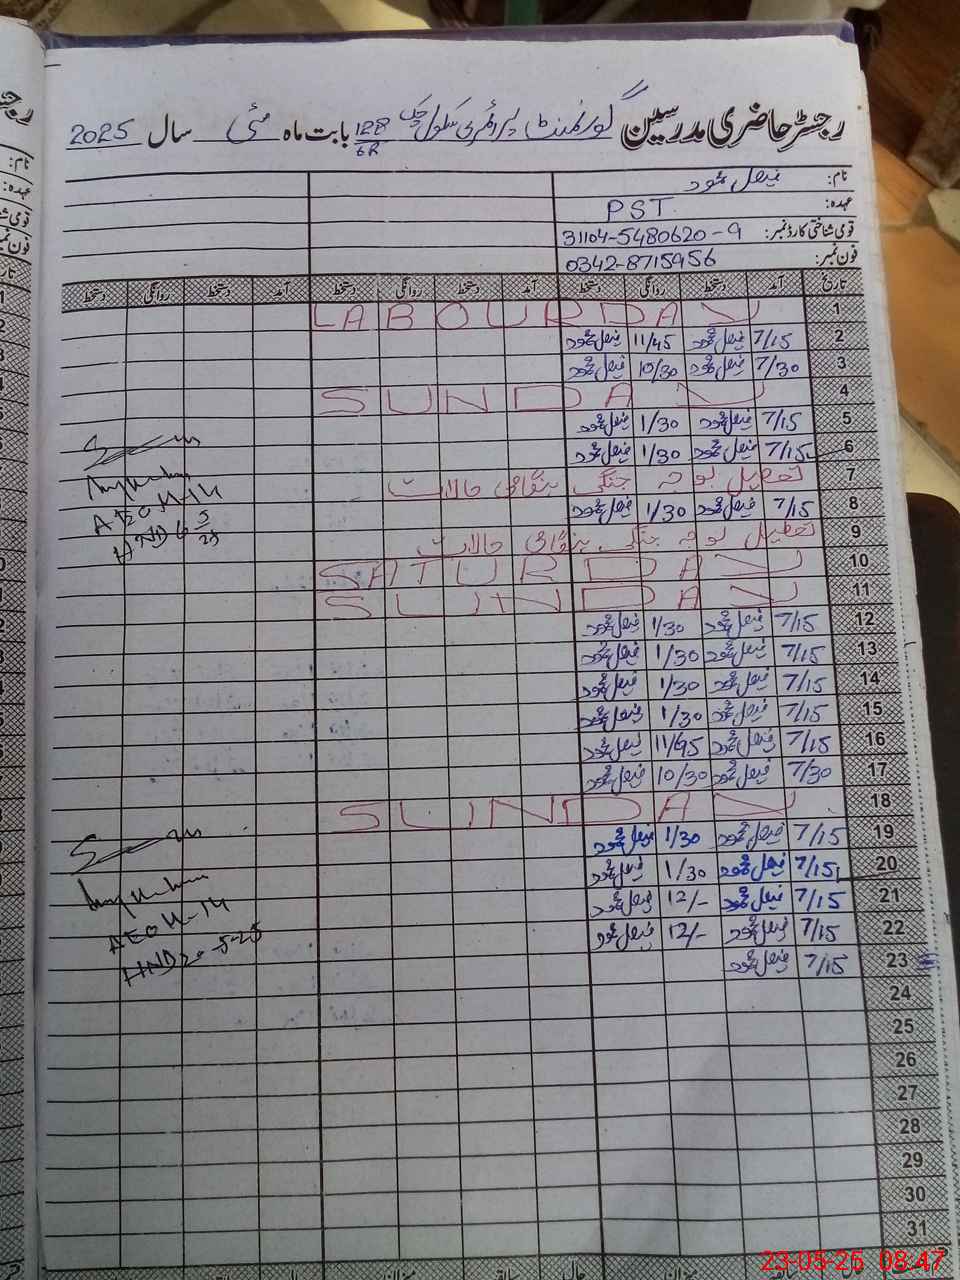 رجسٹر حاضری مدرسین گورنمنٹ پرائمری سکول چک 128/6R بابت ماہ مئی سال 2025
نام: فیصل محمود
عہدہ: PST
قومی شناختی کارڈ نمبر: 31104-5480620-9
فون نمبر: 0342-8715956
تاریخ آمد دستخط روانگی دستخط آمد دستخط روانگی دستخط آمد دستخط روانگی دستخط
1 LABOUR DAY
2 7/15 فیصل محمود 11/45 فیصل محمود
3 7/30 فیصل محمود 10/30 فیصل محمود
4 SUNDAY
5 7/15 فیصل محمود 1/30 فیصل محمود
6 7/15 فیصل محمود 1/30 فیصل محمود
7 تعطیل بوجہ جنگی ہنگامی حالات
8 7/15 فیصل محمود 1/30 فیصل محمود
9 تعطیل بوجہ جنگی ہنگامی حالات
10 SATURDAY
11 SUNDAY
12 7/15 فیصل محمود 1/30 فیصل محمود
13 7/15 فیصل محمود 1/30 فیصل محمود
14 7/15 فیصل محمود 1/30 فیصل محمود
15 7/15 فیصل محمود 1/30 فیصل محمود
16 7/15 فیصل محمود 11/45 فیصل محمود
17 7/30 فیصل محمود 10/30 فیصل محمود
18 SUNDAY
19 7/15 فیصل محمود 1/30 فیصل محمود
20 7/15 فیصل محمود 1/30 فیصل محمود
21 7/15 فیصل محمود 12/- فیصل محمود
22 7/15 فیصل محمود 12/- فیصل محمود
23 7/15 فیصل محمود
24
25
26
27
28
29
30
31
AEO M-14
HND 6 5/25
AEO M-14
HND 20-5-25
23-05-25 08:47